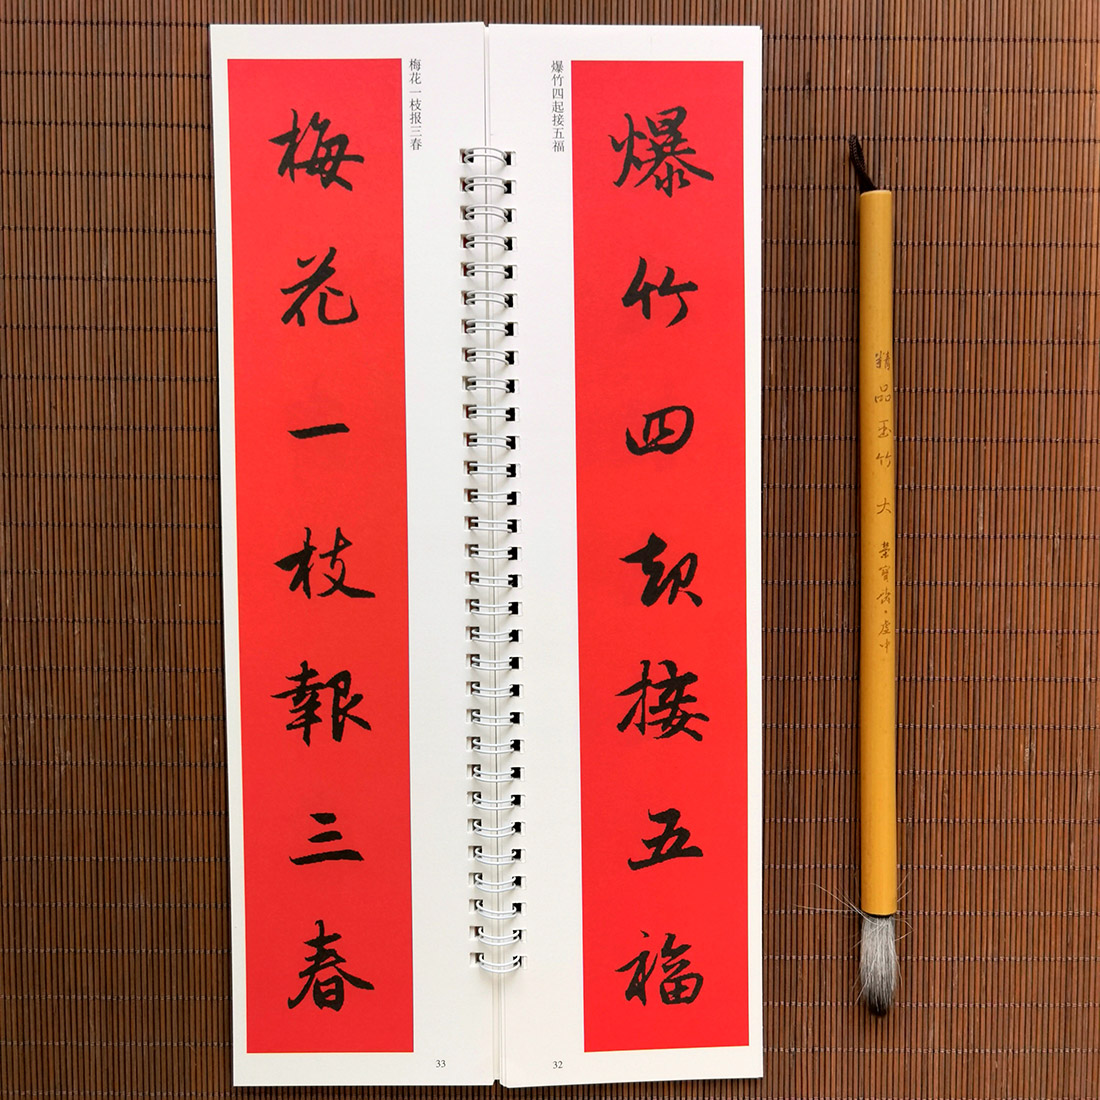 爆竹四起接五福
爆竹四起接五福
梅花一枝報三春
梅花一枝报三春
32
33
精品玉竹 大 榮寶齋·虛中